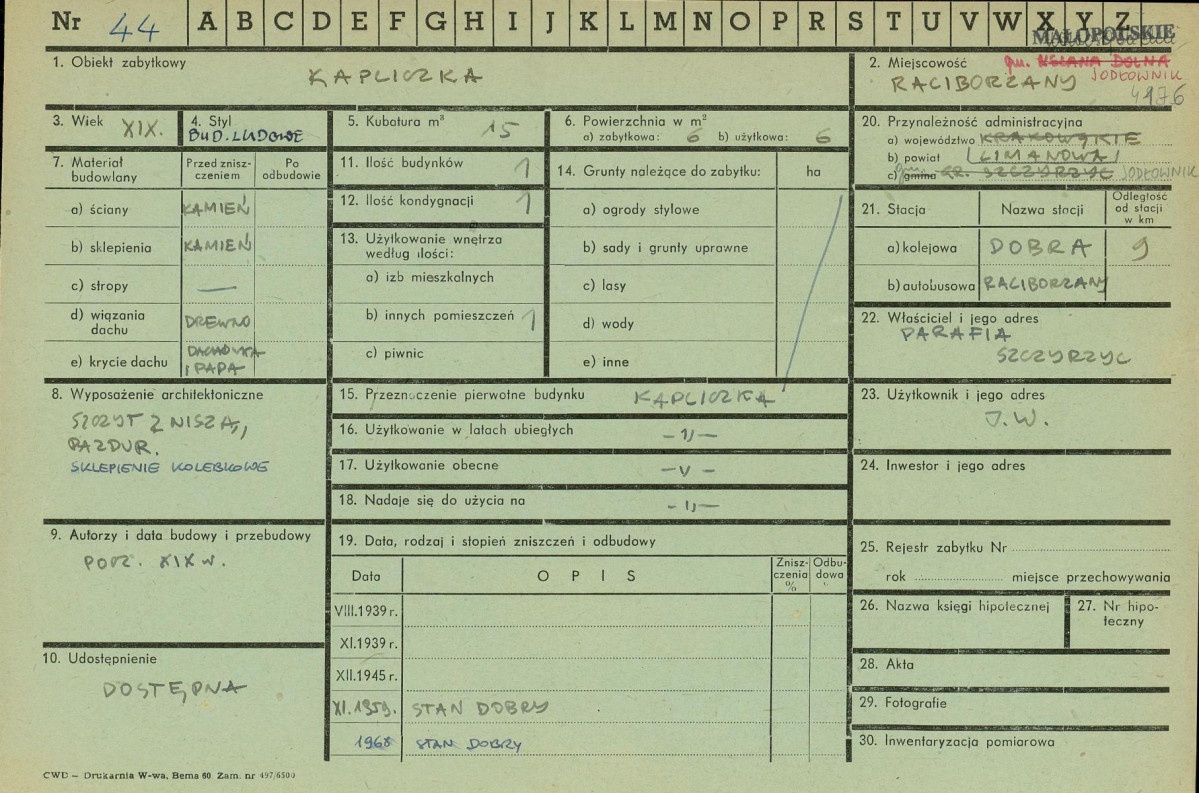 Nr 44 A B C D E F G H I J K L M N O P R S T U V W X Y Z
MAŁOPOLSKIE
1. Obiekt zabytkowy
KAPLICZKA
2. Miejscowość gm. WSIANA DOLNA
RACIBORZANY JODŁOWNIK
4976
3. Wiek XIX.
4. Styl
BUD. LUDOWE
5. Kubatura m³ 15
6. Powierzchnia w m²
a) zabytkowa: 6 b) użytkowa: 6
20. Przynależność administracyjna
a) województwo KRAKOWSKIE
b) powiat (LIMANOWA)
c) gmina gm. GR. SZCZYRZYC JODŁOWNIK
7. Materiał budowlany
Przed zniszczeniem
Po odbudowie
a) ściany KAMIEŃ
b) sklepienia KAMIEŃ
c) stropy —
d) wiązania dachu DREWNO
e) krycie dachu DACHÓWKA
i PAPA
11. Ilość budynków 1
12. Ilość kondygnacji 1
13. Użytkowanie wnętrza
według ilości:
a) izb mieszkalnych
b) innych pomieszczeń 1
c) piwnic
14. Grunty należące do zabytku: ha
a) ogrody stylowe
b) sady i grunty uprawne
c) lasy
d) wody
e) inne
21. Stacja Nazwa stacji Odległość od stacji w km
a) kolejowa DOBRA 9
b) autobusowa RACIBORZANY
22. Właściciel i jego adres
PARAFIA
SZCZYRZYC
8. Wyposażenie architektoniczne
SZCZYT Z NISZĄ,
PAZDUR.
SKLEPIENIE KOLEBKOWE
15. Przeznaczenie pierwotne budynku KAPLICZKA
16. Użytkowanie w latach ubiegłych —"—
17. Użytkowanie obecne —"—
18. Nadaje się do użycia na —"—
23. Użytkownik i jego adres
J.W.
24. Inwestor i jego adres
9. Autorzy i data budowy i przebudowy
POCZ. XIX W.
19. Data, rodzaj i stopień zniszczeń i odbudowy
Data OPIS Zniszczenia % Odbudowa
VIII.1939 r.
XI.1939 r.
XII.1945 r.
XI.1959. STAN DOBRY
1968 STAN DOBRY
10. Udostępnienie
DOSTĘPNA
25. Rejestr zabytku Nr
rok miejsce przechowywania
26. Nazwa księgi hipotecznej
27. Nr hipoteczny
28. Akta
29. Fotografie
30. Inwentaryzacja pomiarowa
CWD – Drukarnia W-wa, Bema 60 Zam. nr 497/6500